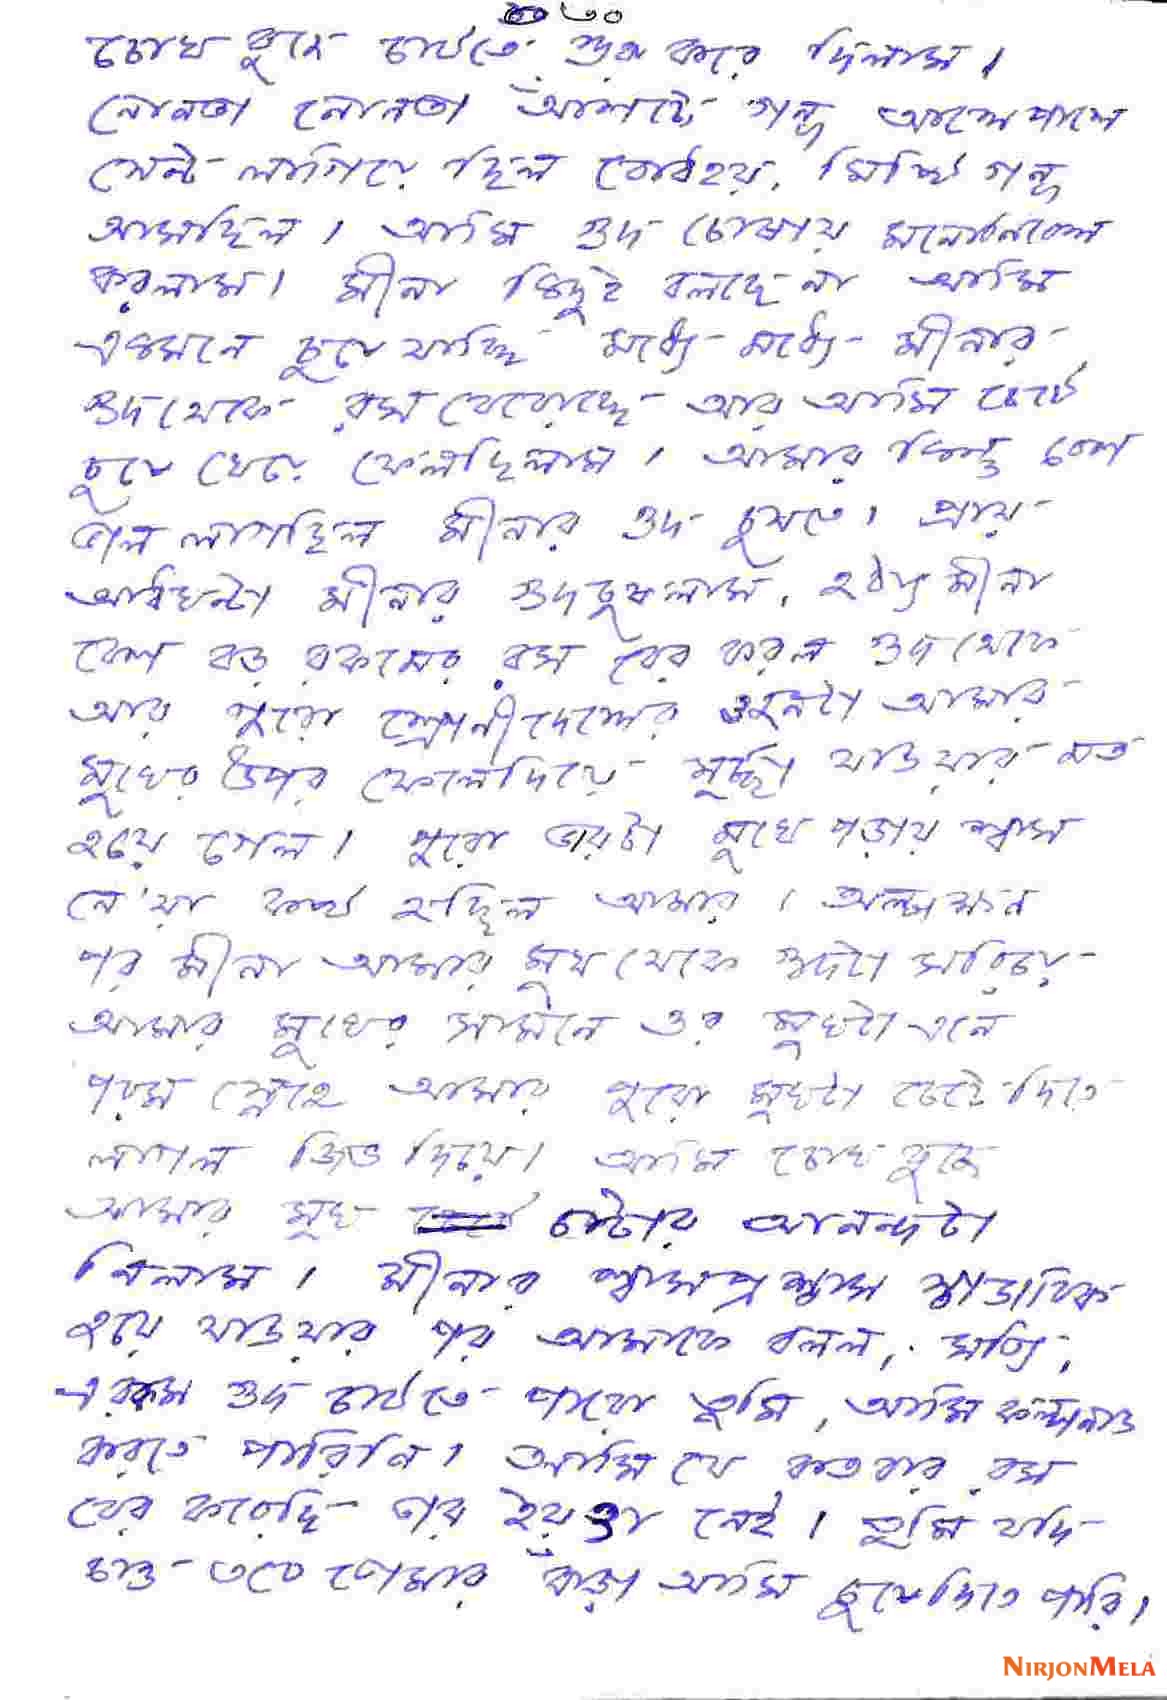 ৩০
চোখ বুজে চাটতে শুরু করে দিলাম।
নোনতা নোনতা আঁশটে গন্ধ আশে পাশে
সেন্ট লাগিয়ে ছিল বোধহয়, মিষ্টি গন্ধ
আসছিল। আমি গুদ চোষায় মনোনিবেশ
করলাম। মীনা কিছুই বলছে না আমি
একমনে চুষে যাচ্ছি মধ্যে মধ্যে মীনার
গুদ থেকে রস বেরোচ্ছে আর আমি চেটে
চুষে খেয়ে ফেলছিলাম। আমার কিন্তু বেশ
ভাল লাগছিল মীনার গুদ চুষতে। প্রায়
আধঘন্টা মীনার গুদ চুষলাম, হঠাৎ মীনা
বেশ বড় রকমের রস বের করল গুদ থেকে
আর পুরো শ্রোণীদেশের ওজনটা আমার
মুখের উপর ফেলে দিয়ে মূর্চ্ছা যাওয়ার মত
হয়ে গেল। পুরো ভারটা মুখে পড়ায় শ্বাস
নেওয়া কষ্ট হচ্ছিল আমার। অল্পক্ষন
পর মীনা আমার মুখ থেকে গুদটা সরিয়ে
আমার মুখের সামনে ওর মুখটা এনে
পরম স্নেহে আমার পুরো মুখটা চেটে দিতে
লাগল জিভ দিয়ে। আমি চোখ বুজে
আমার মুখ চাটার আনন্দটা
নিলাম। মীনার শ্বাসপ্রশ্বাস স্বাভাবিক
হয়ে যাওয়ার পর আমাকে বলল, সত্যি,
এরকম গুদ চাটতে পারো তুমি, আমি কল্পনাও
করতে পারিনি। আমি যে কতবার রস
বের করেছি তার ইয়ত্তা নেই। তুমি যদি
চাও তবে তোমার বাঁড়া আমি চুষে দিতে পারি।
NIRJONMELA